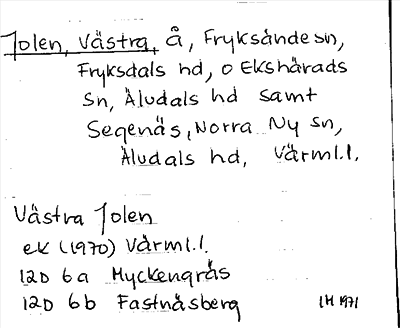 Jolen, Västra, å, Fryksände sn,
Fryksdals hd, o Ekshärads
sn, Äludals hd samt
Segenäs, Norra Ny sn,
Äludals hd, Värml.l.
Västra Jolen
ek (1970) Värml.l.
12D 6a Myckengräs
12D 6b Fastnäsberg
IH 1971